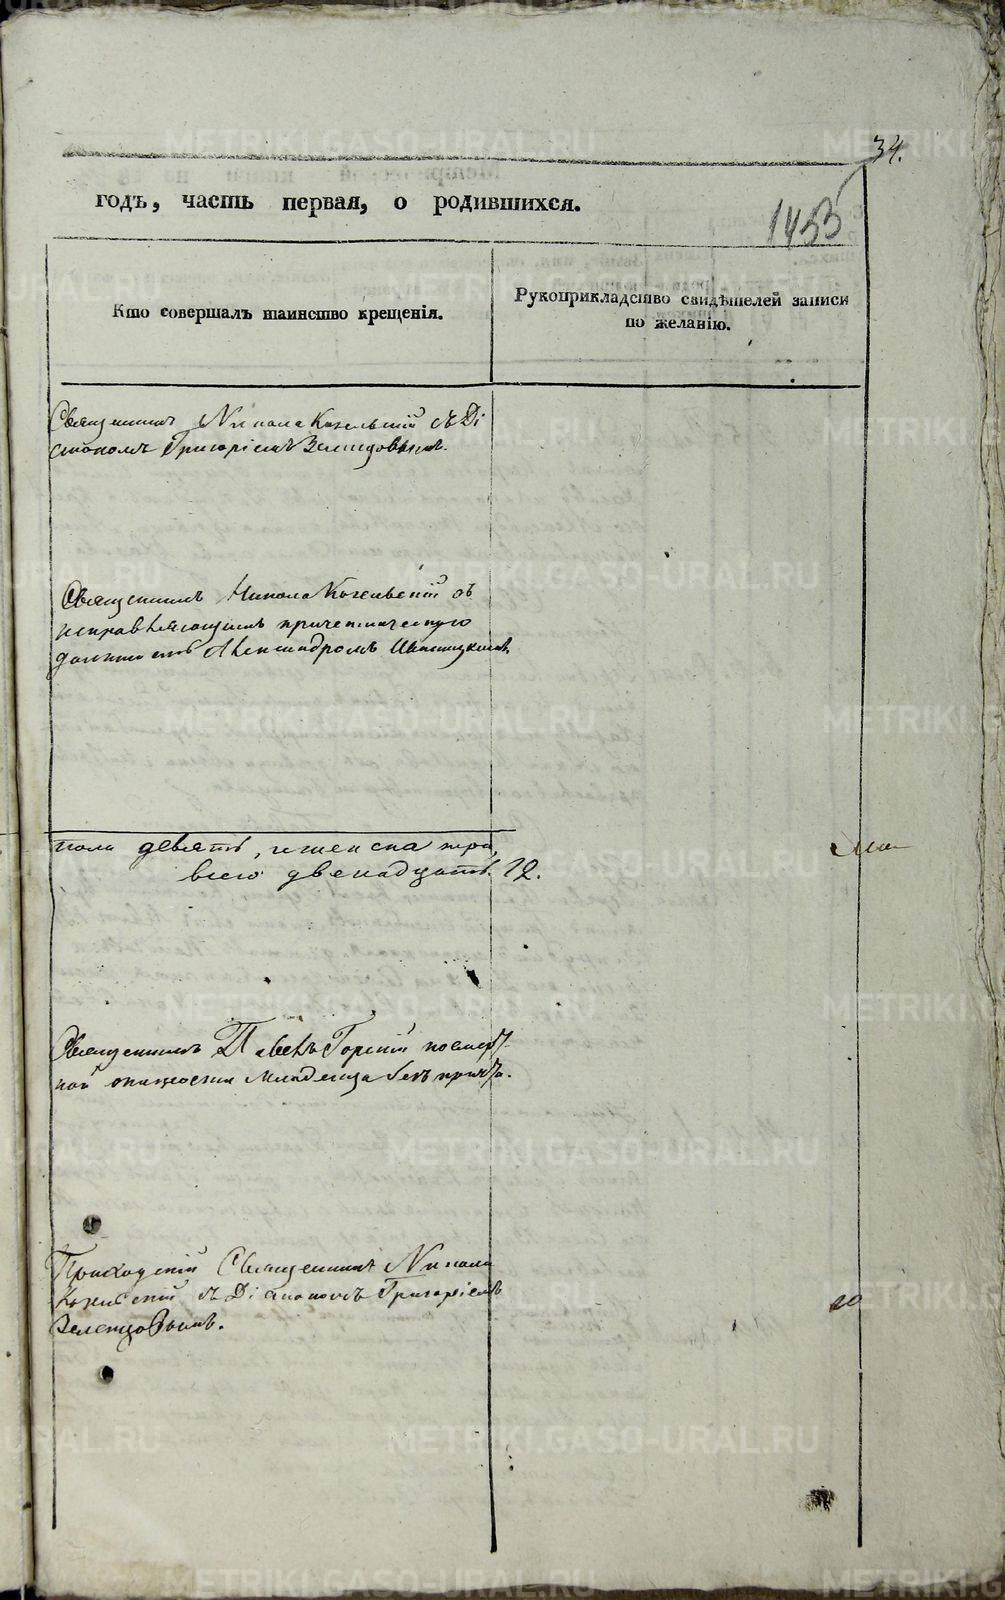 34.
годъ, часть первая, о родившихся.
1453
Кто совершалъ таинство крещенія.
Рукоприкладство свидѣтелей записи
по желанію.
Священникъ Никола Кожевскій съ Ді
акономъ Григоріемъ Зеленцовымъ.
Священникъ Никола Кожевскій съ
исправляющимъ причетническую
должность Александромъ
пола девять, и женска три,
всего двенадцать. 12.
Священникъ Павелъ Горскій по
ной опасности младенца безъ причта.
Приходскій Священникъ Никола
Кожевскій съ Діакономъ Григоріемъ
Зеленцовымъ.
METRIKI.GASO-URAL.RU